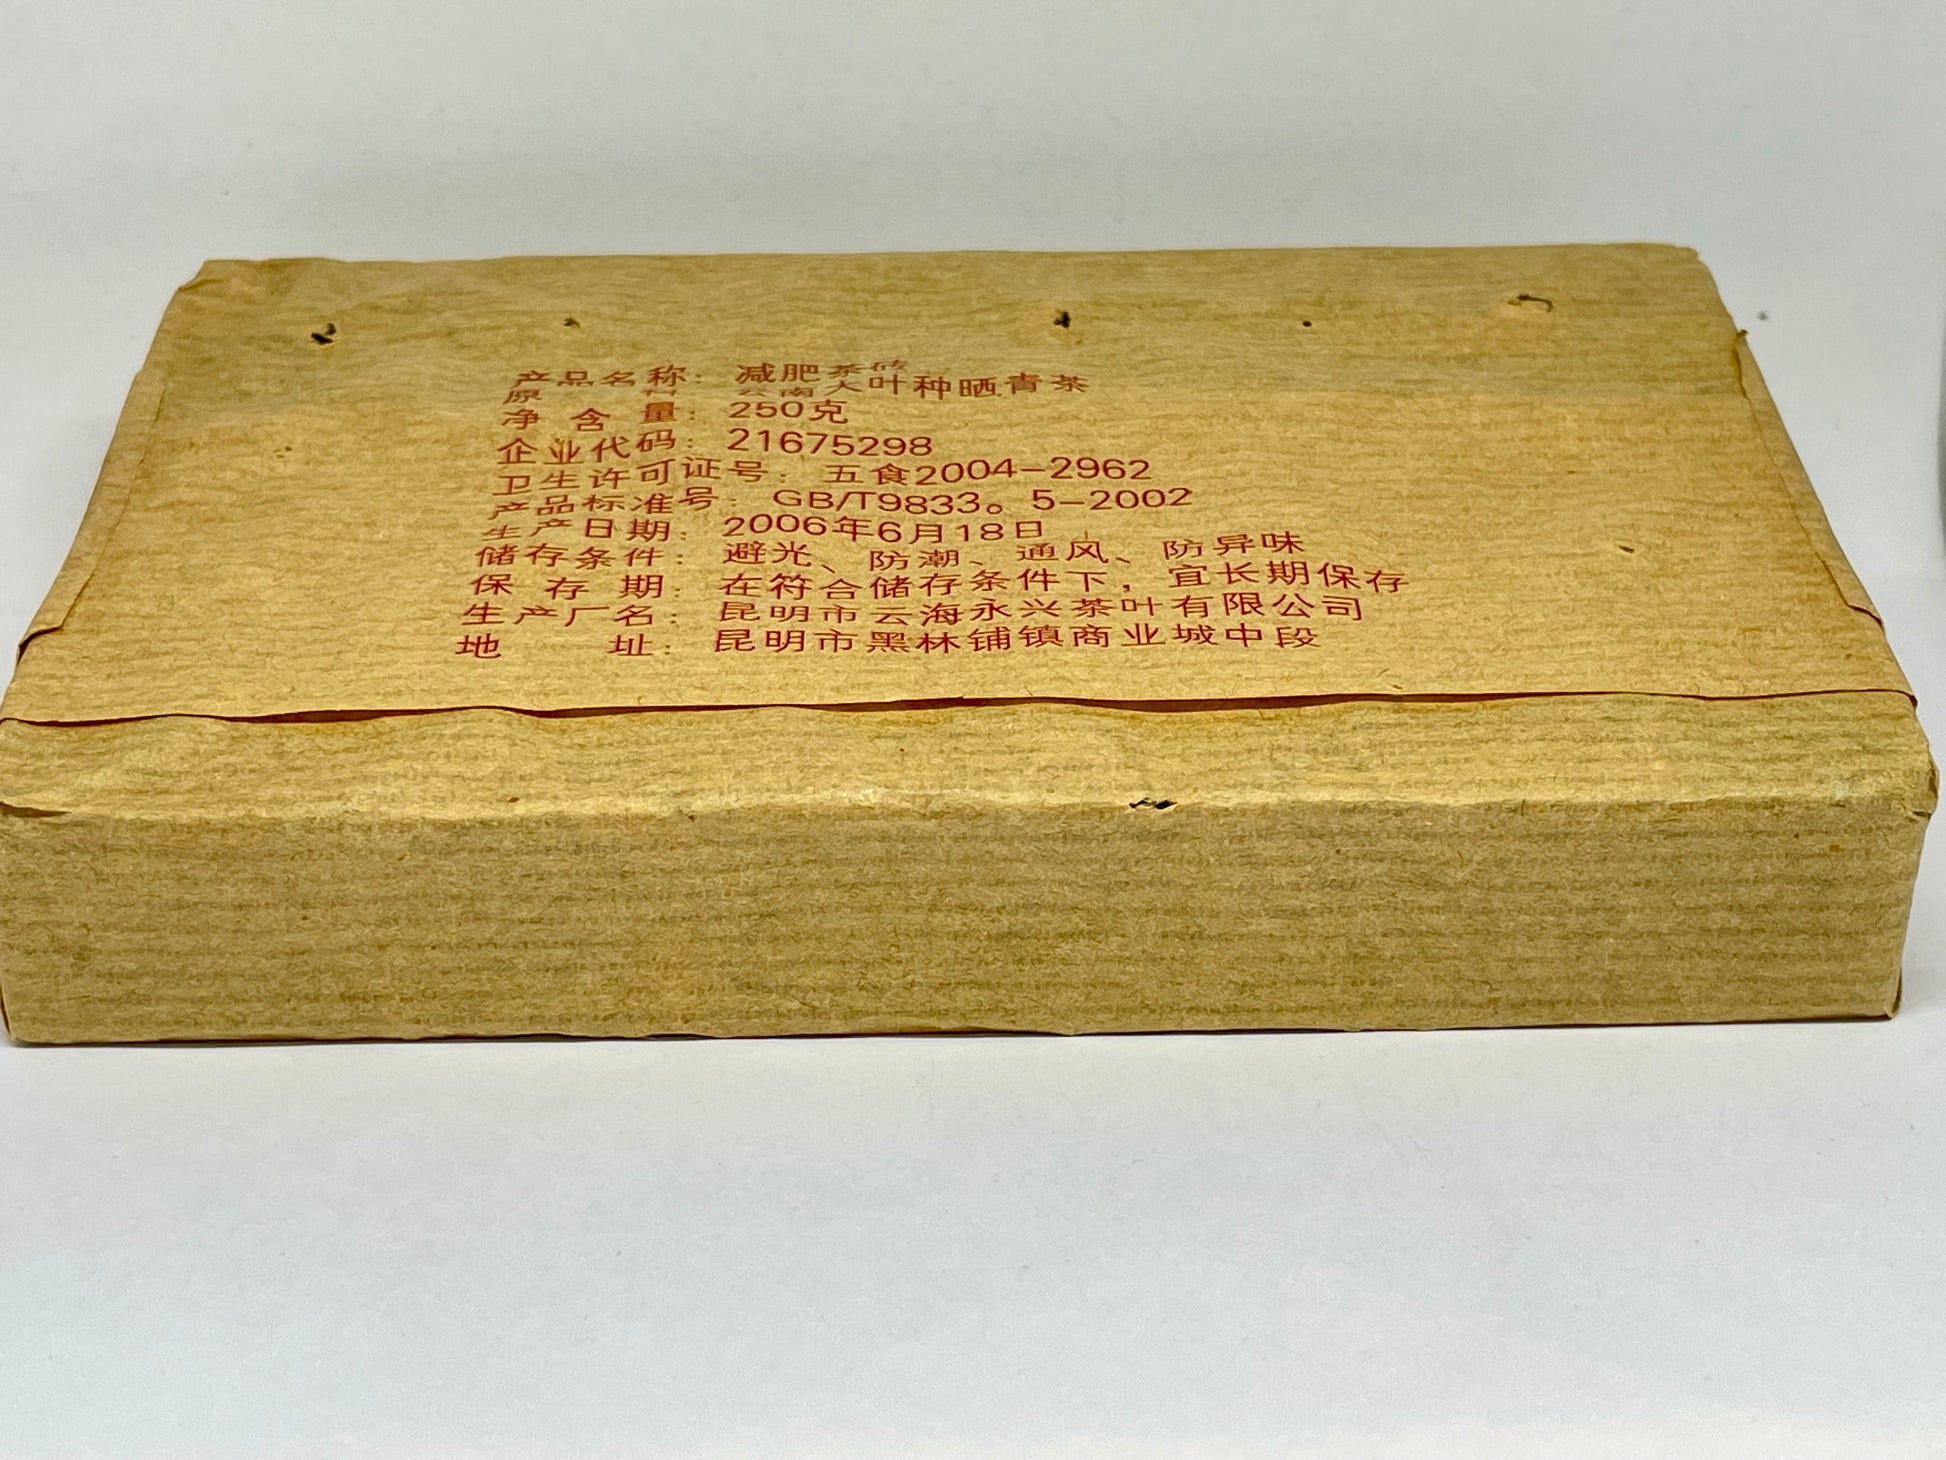 产品名称：减肥茶砖
原 料：云南大叶种晒青茶
净含量：250克
企业代码：21675298
卫生许可证号：五食2004-2962
产品标准号：GB/T9833。5-2002
生产日期：2006年6月18日
储存条件：避光、防潮、通风、防异味
保存期：在符合储存条件下，宜长期保存
生产厂名：昆明市云海永兴茶叶有限公司
地 址：昆明市黑林铺镇商业城中段